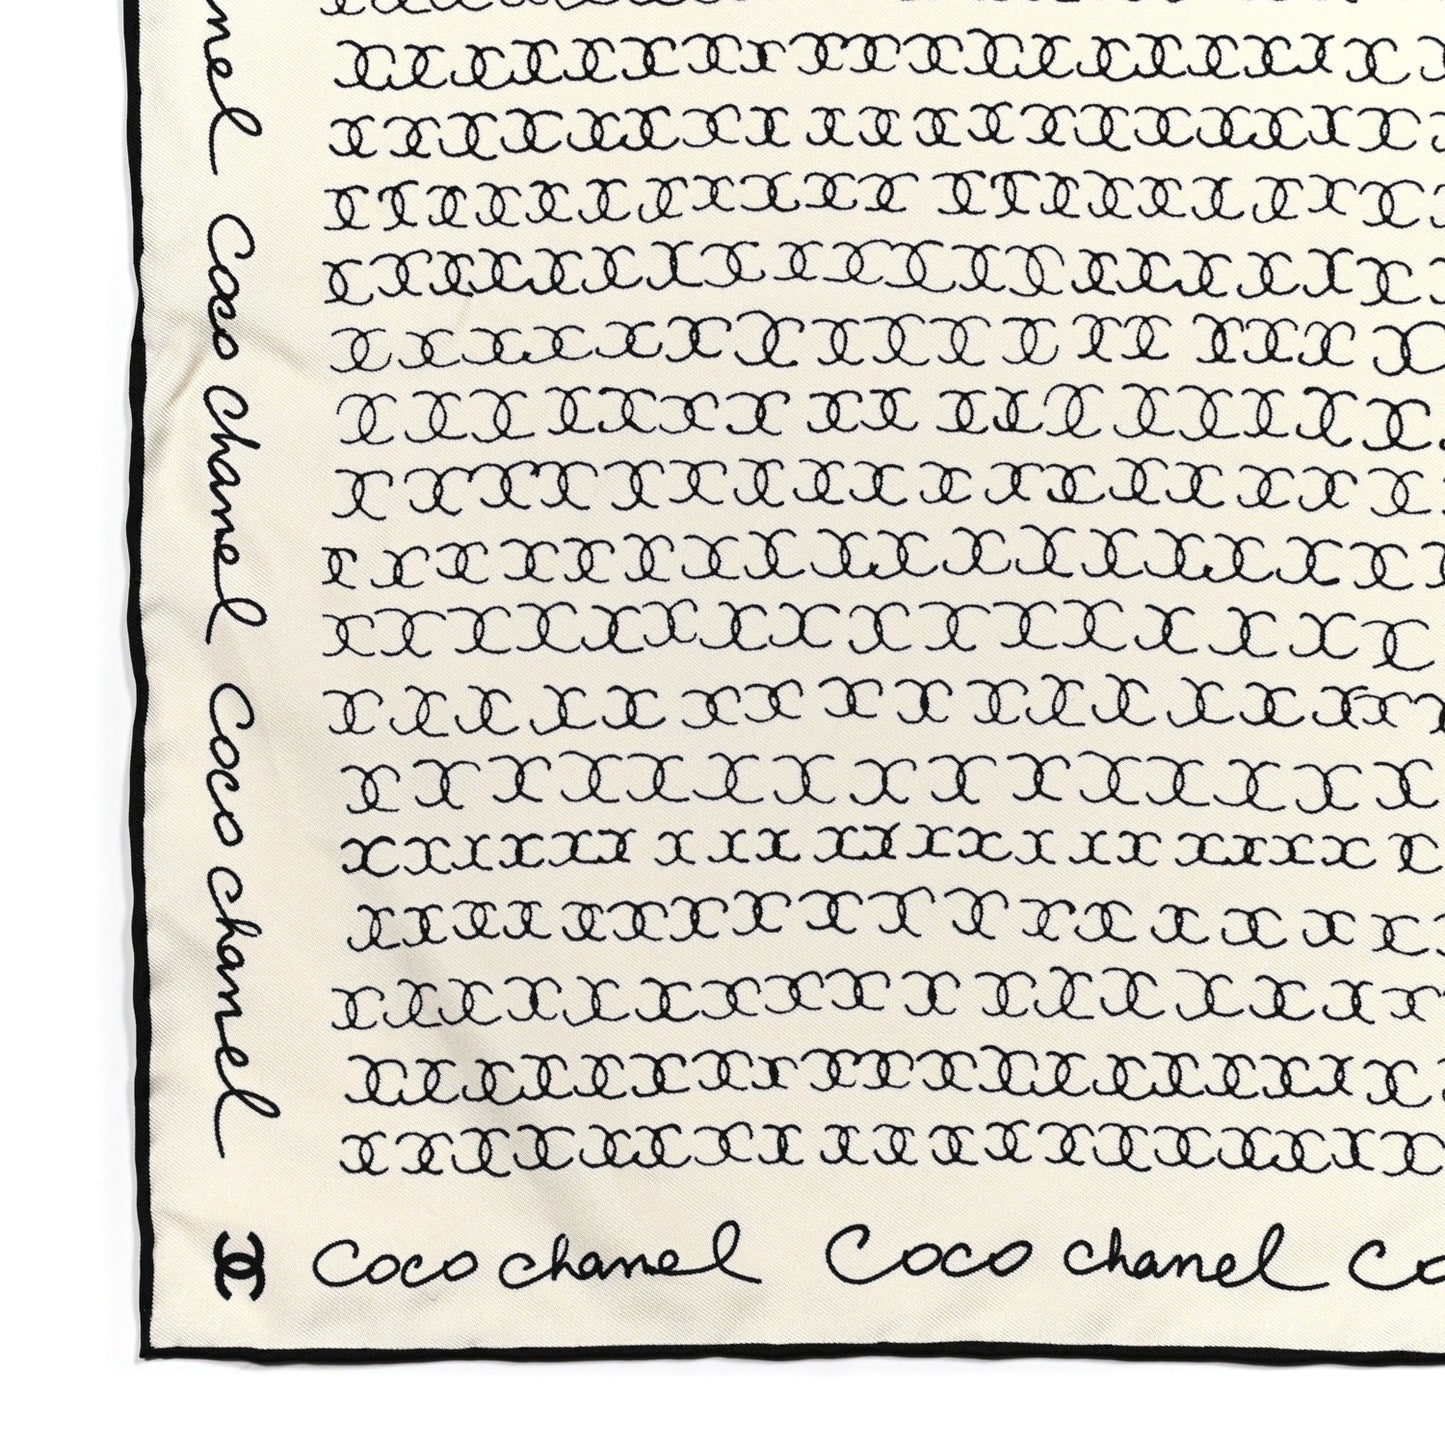 nel
Coco chanel
Coco chanel
Coco chanel Coco chanel Co